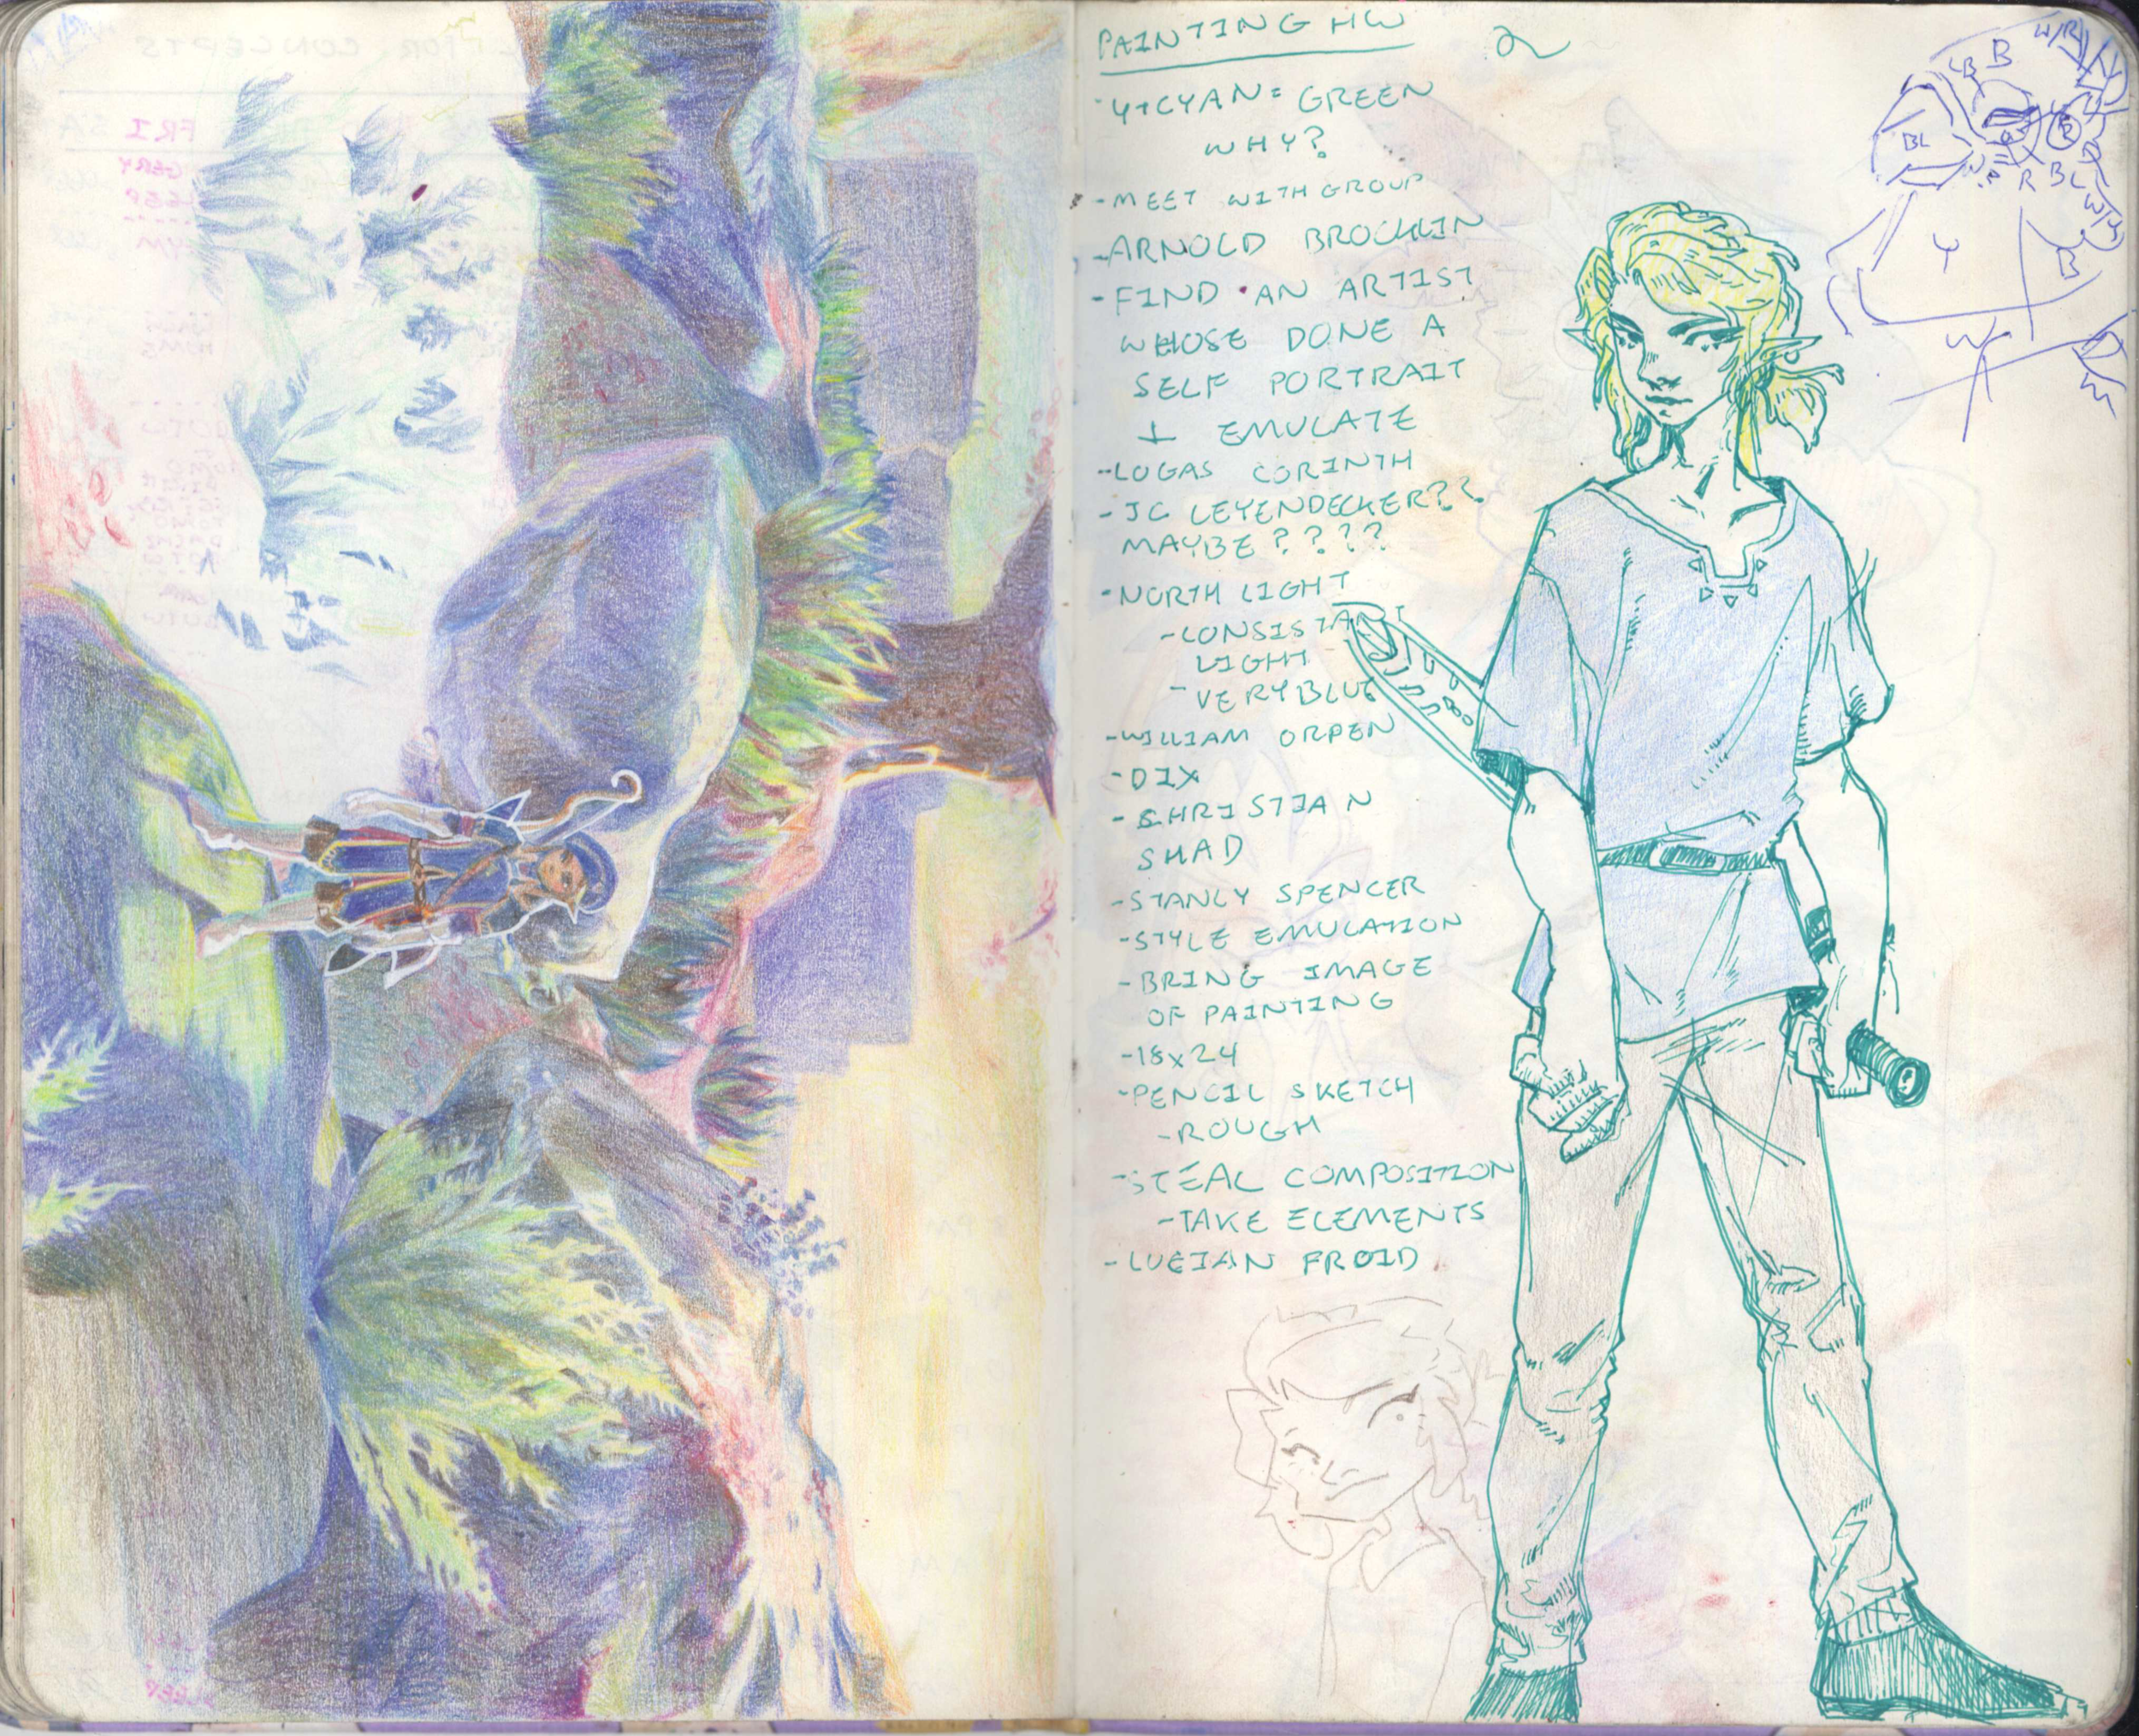 PAINTING HW
2
- Y+CYAN= GREEN
WHY?
- MEET WITH GROUP
- ARNOLD BROCKLIN
- FIND AN ARTIST
WHOSE DONE A
SELF PORTRAIT
+ EMULATE
- LOGAS CORINTH
- JC LEYENDECKER??
MAYBE????
- NORTH LIGHT
- CONSISTAN
LIGHT
- VERY BLUE
- WILLIAM ORPEN
- DIX
- CHRISTIAN
SHAD
- STANLY SPENCER
- STYLE EMULATION
- BRING IMAGE
OF PAINTING
- 18x24
- PENCIL SKETCH
- ROUGH
- STEAL COMPOSITION
- TAKE ELEMENTS
- LUCIAN FROID
W/R
B B
BL
R BL
Y
B
W